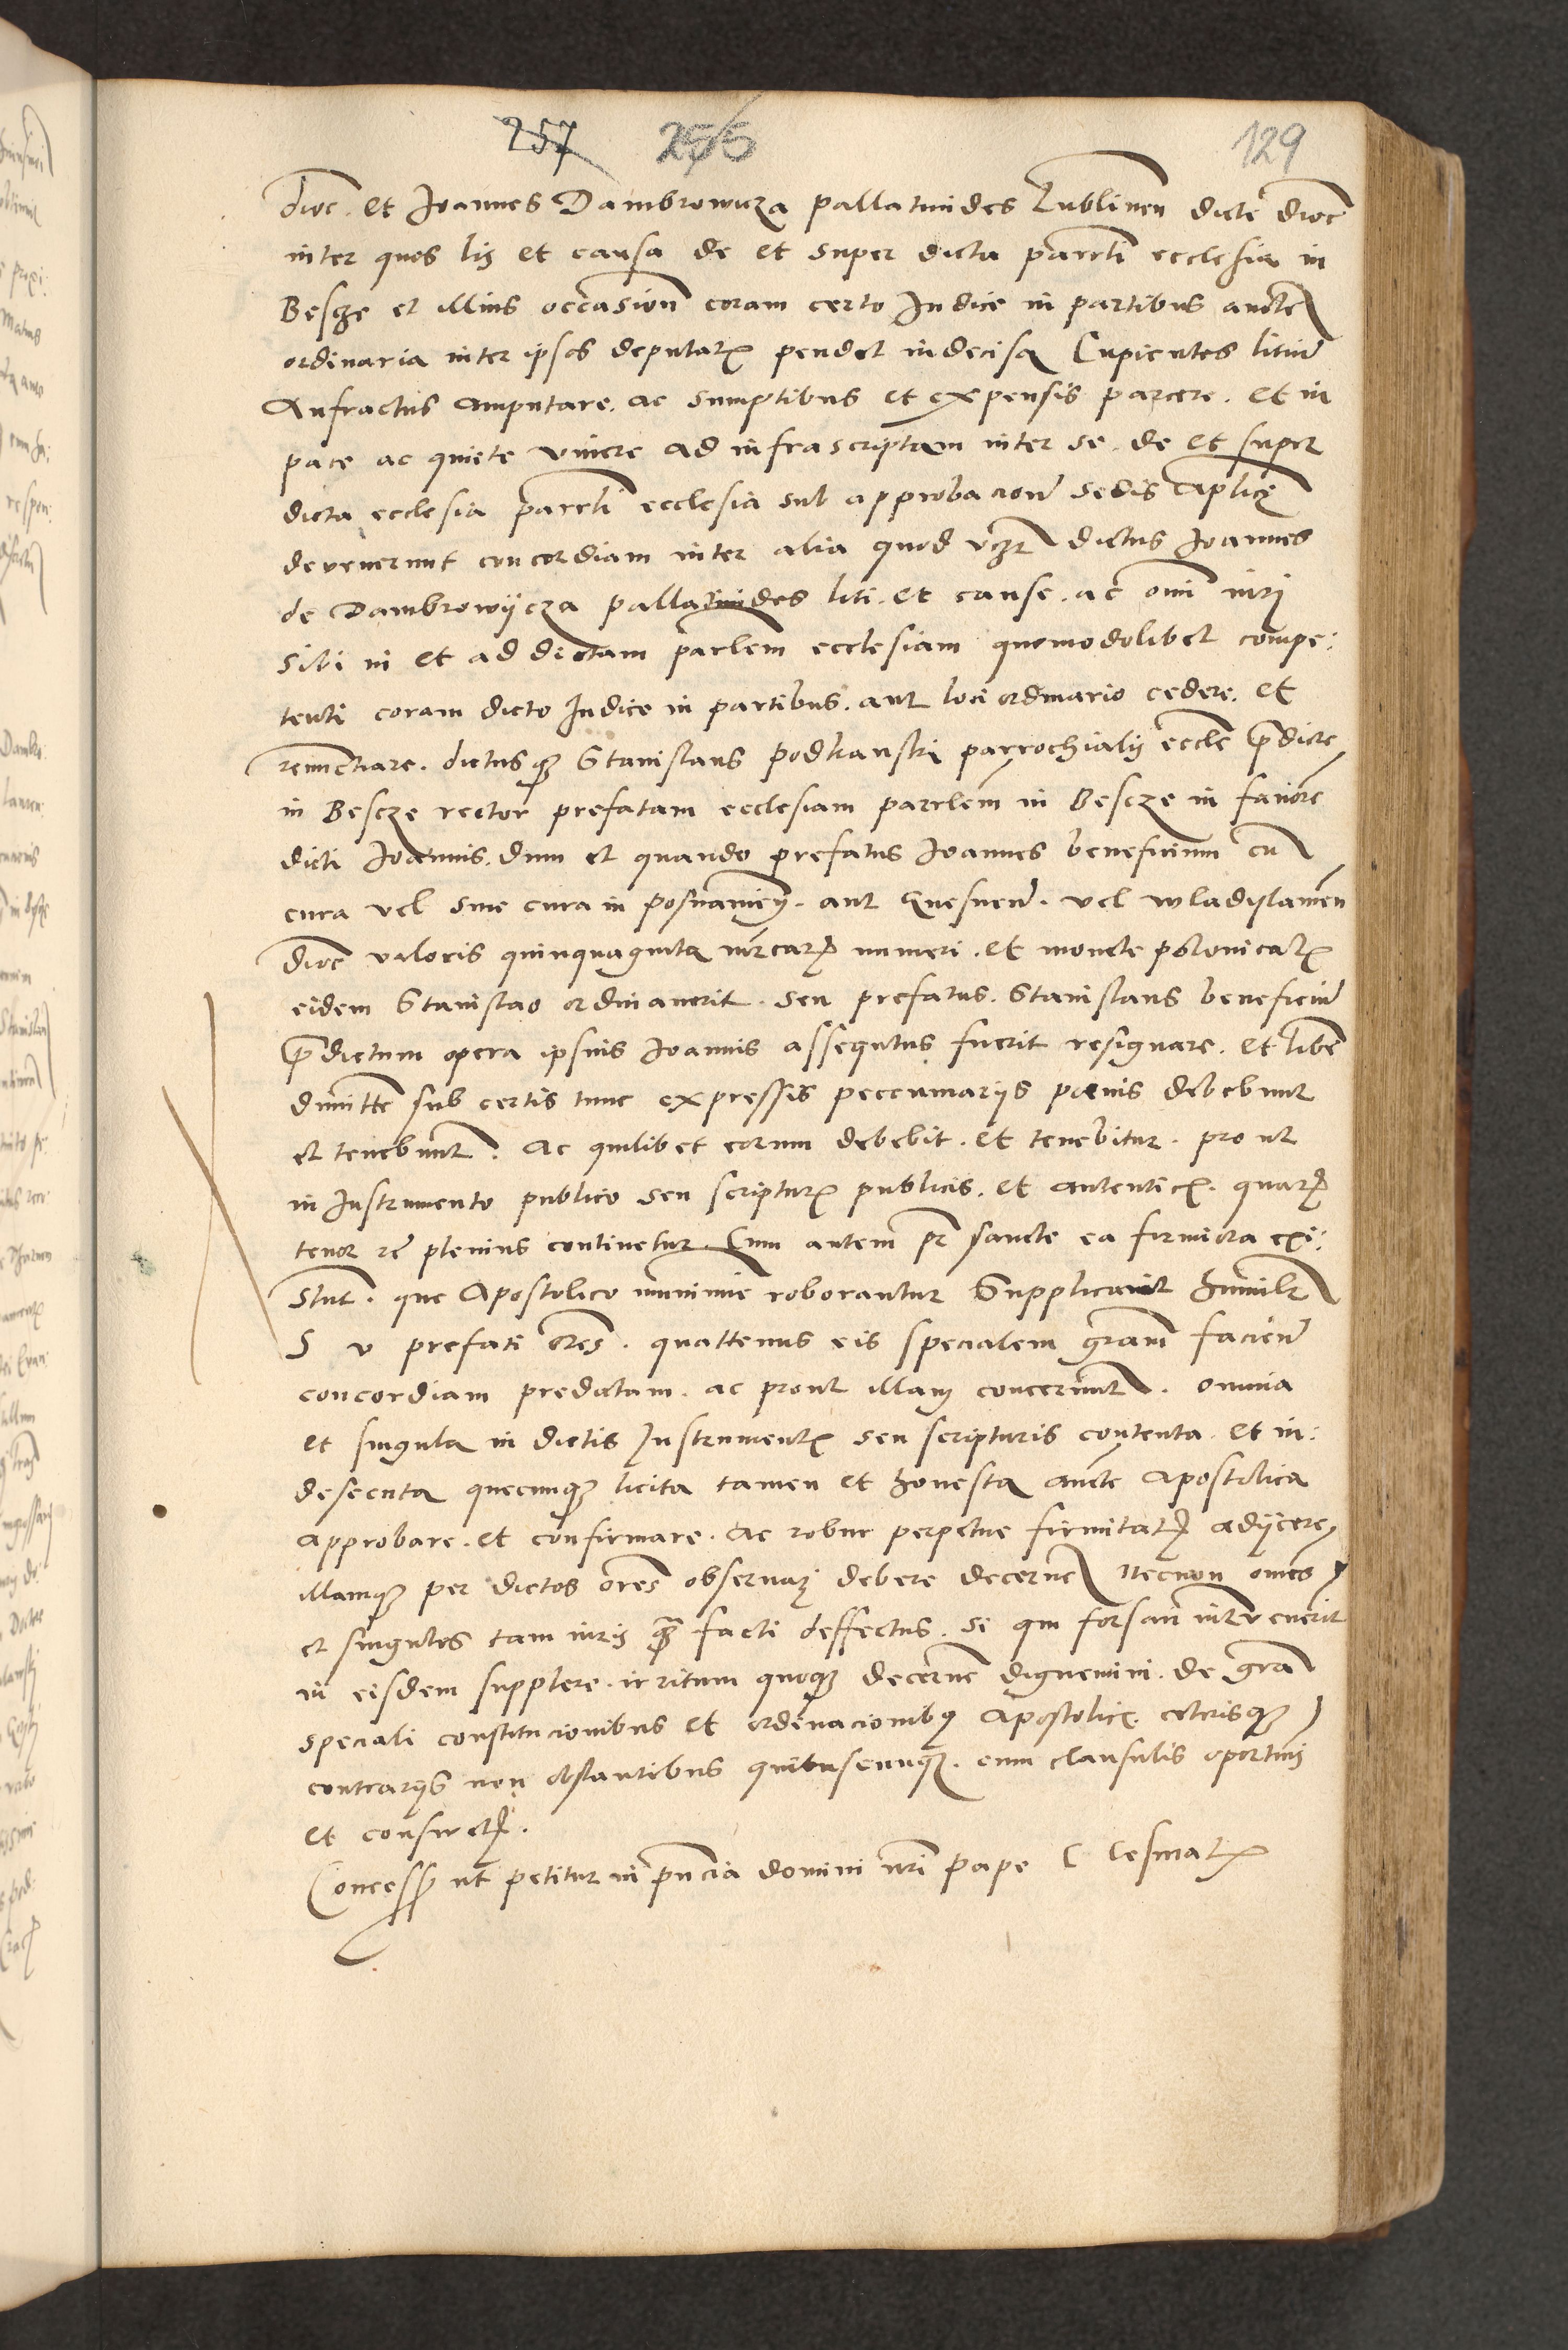 257 256 129
dioc. et Joannes Dambrowicza pallatinides Lublinen dicte dioc
inter quos lis et causa de et super dicta parrli ecclesia in
Besche et illius occasion coram certo Judice in partibus aucte
ordinaria inter ipsos deputat pendet indecisa Cupientes litium
Anfractus amputare. ac sumptibus et expensis parcere. et in
pace ac quiete vivere ad infrascriptam inter se. de et super
dicta ecclesia parrli ecclesia sub approbacione sedis Aplice
devenerunt concordiam inter alia quod vz dictus Joannes
de Dambrowijcza pallatinides liti. et cause. ac omni iuri
sibi in et ad dictam parlem ecclesiam quomodolibet compe:
tenti coram dicto Judice in partibus. aut loci ordinario cedere. et
renuntiare. dictusque Stanislaus Podlianski parrochialis eccle predicte
in Bescze rector prefatam ecclesiam parrlem in Bescze in favore
dicti Joannis. dum et quando prefatus Joannes beneficium cu
cura vel sine cura in posnamien. aut Gnesnen. vel wladislamen
dioc valoris quinquaginta mrcar numeri. et monete polonicat
eidem Stanislao ordinaverit. seu prefatus. Stanislaus beneficiu
predictum opera ipsius Joannis assequtus fuerit resignare. et libe
dimitte sub certis tunc expressis peccuniarijs poenis debebunt
et tenebunt. Ac quilibet eorum debebit. et tenebitur. pro ut
in Instrumento publico seu scriptur publicis. et autentic. quar
tenor re plenius continetur. Cum autem pr sancte ea firmiora exi:
stut. que Apostolico munimie roborantur Supplicant humilr
S v prefati ores. quattenus eis specialem gram facien
concordiam predictam. ac prout illam concernunt. omnia
et singula in dictis Instrument seu scripturis contenta. et in:
desecuta quecunque licita tamen et honesta aucte Apostolica
approbare. et confirmare. Ac robur perpetue firmitat adijcere
illamque per dictos ores observari debere decerne Necnon omes
et singulos tam iuris qua facti deffectus. si qui forsan intervenerit
in eisdem supplere. irritum quoque decerne dignemini. de gra
speciali constitucionibus et ordinacionibus Apostolic. ceterisque
contrarijs non obstantibus quibuscunque. cum clausulis oportuis
et consuet.
Concess ut petitur in pncia domini nri pape C Cesmat